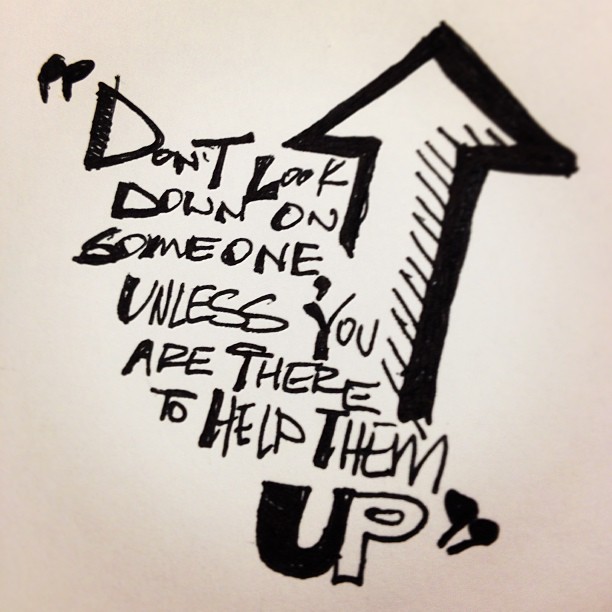 "DON'T LOOK
DOWN ON
SOMEONE,
UNLESS YOU
ARE THERE
TO HELP THEM
UP"